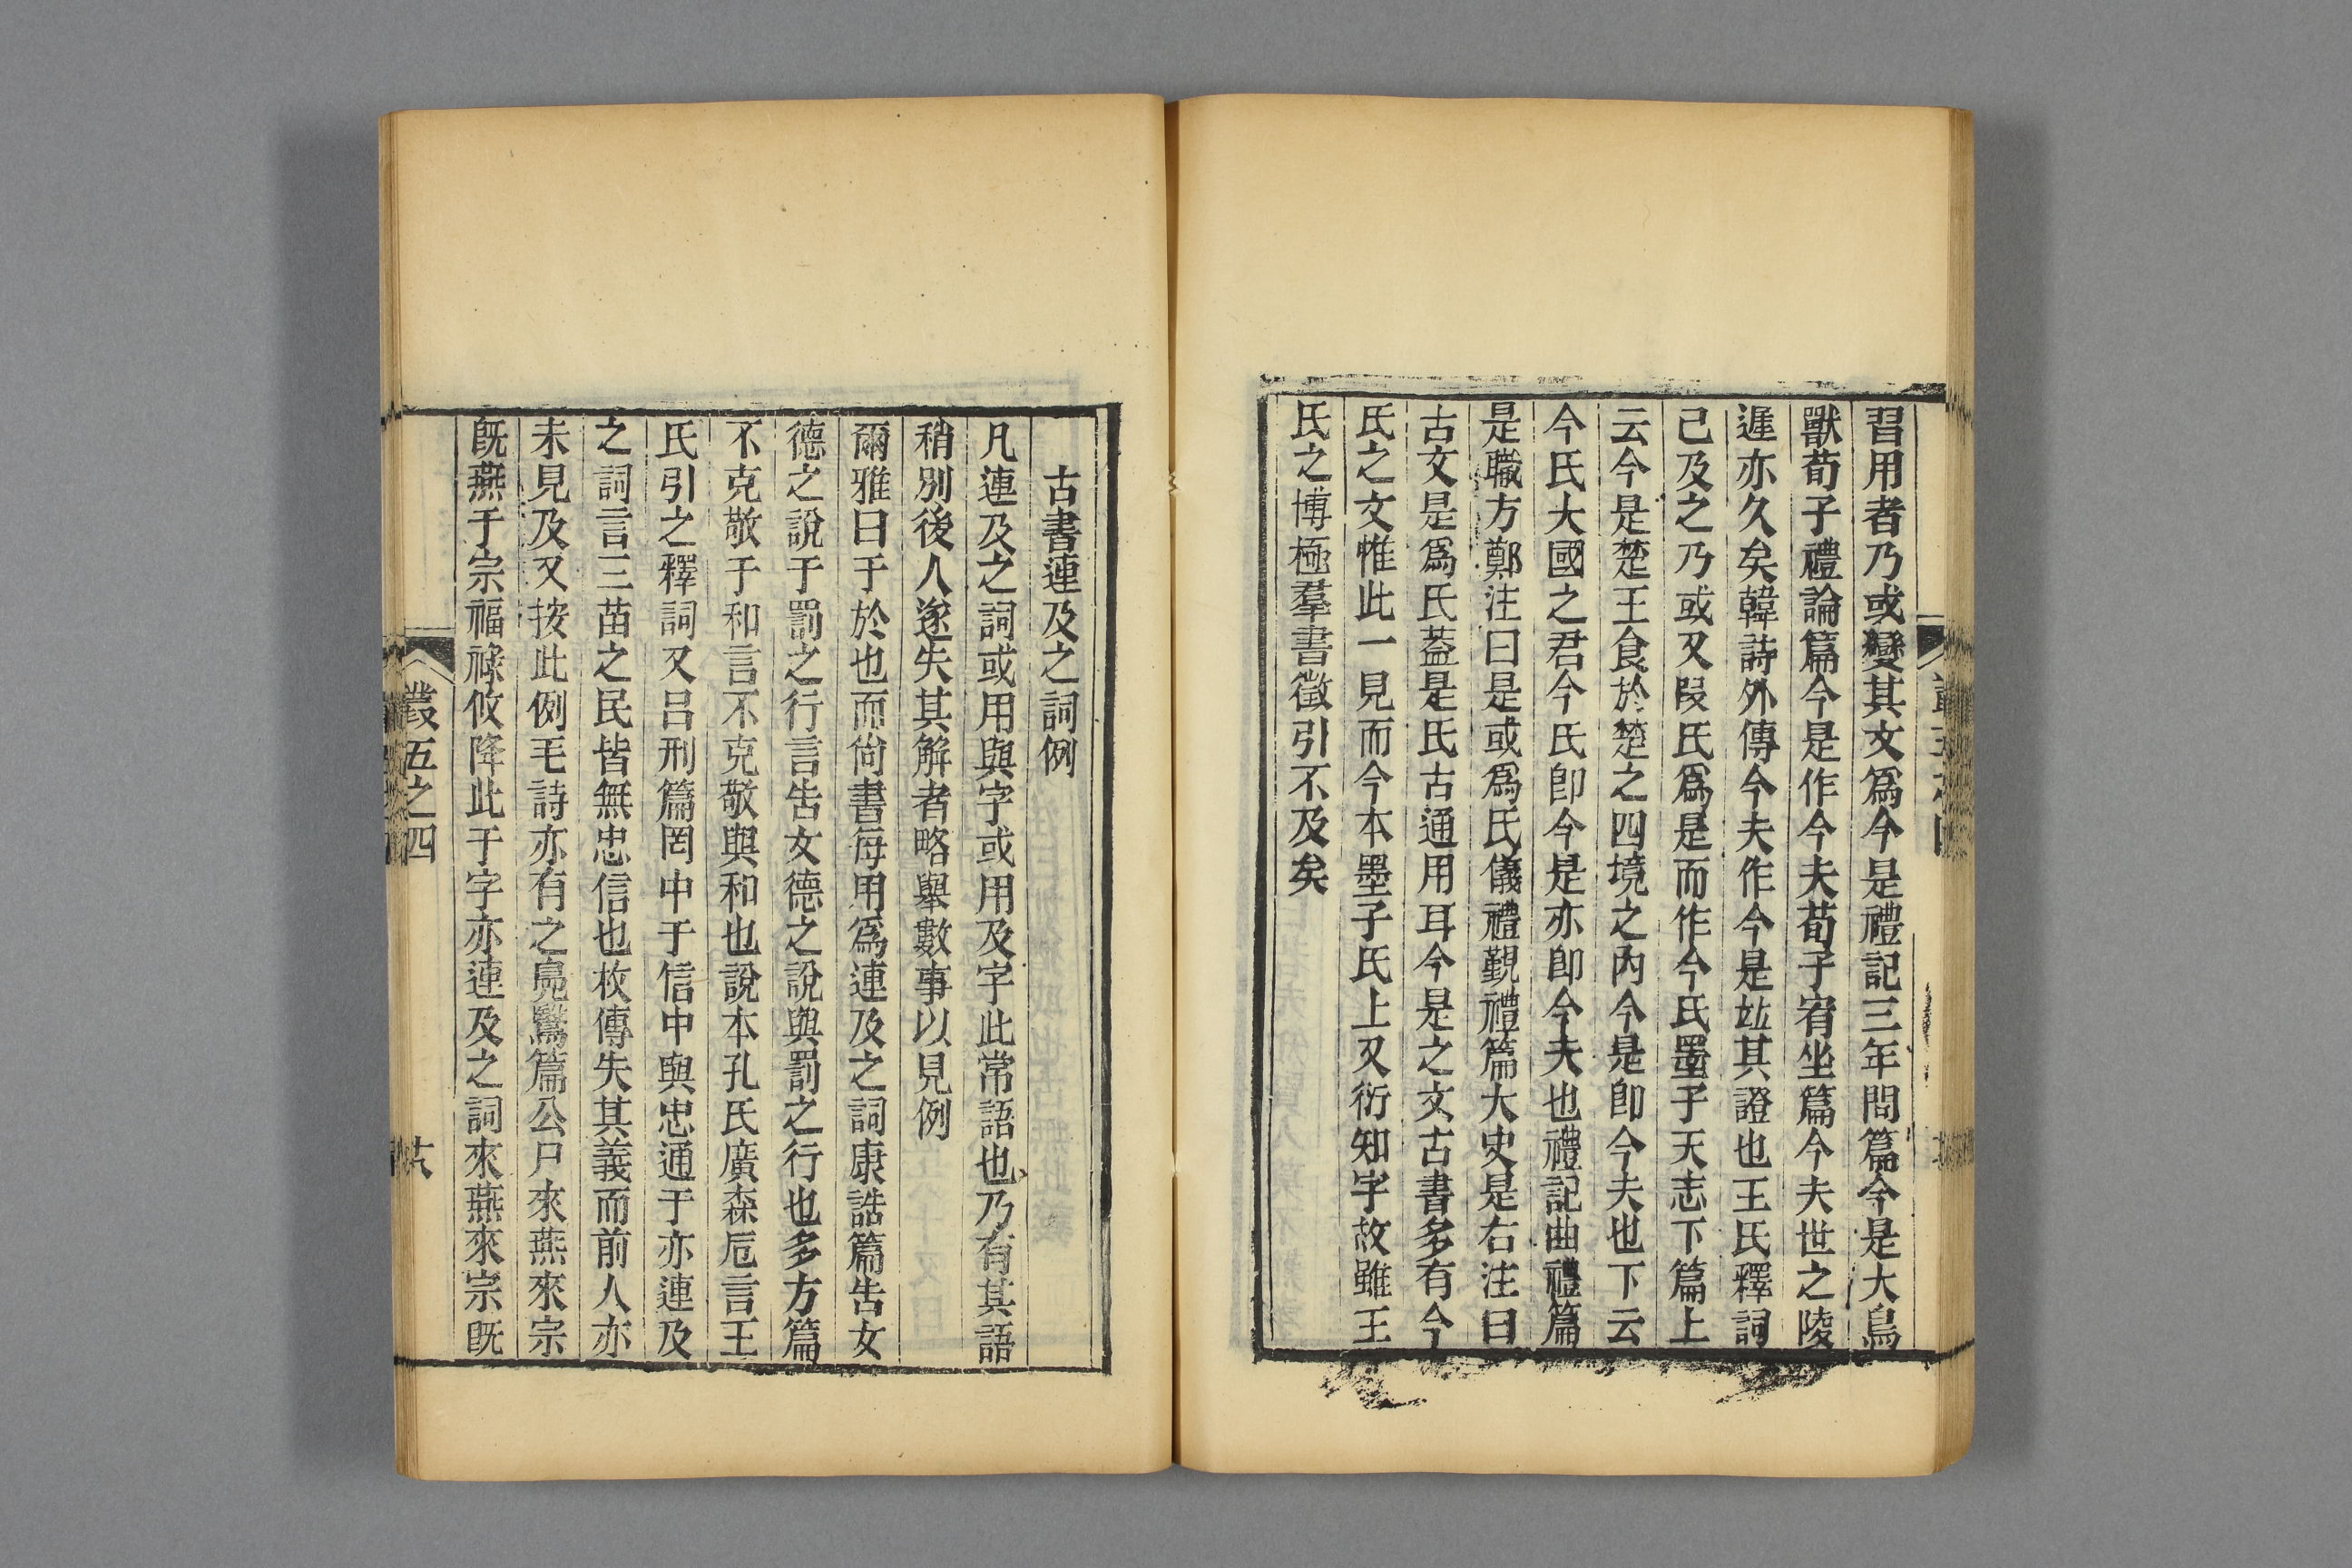 習用者乃或變其文爲今是禮記三年問篇今是大鳥
獸荀子禮論篇今是作今夫荀子宥坐篇今夫世之陵
遲亦久矣韓詩外傳今夫作今是竝其證也王氏釋詞
已及之乃或又叚氏爲是而作今氏墨子天志下篇上
云今是楚王食於楚之四境之內今是卽今夫也下云
今氏大國之君今氏卽今是亦卽今夫也禮記曲禮篇
是職方鄭注曰是或爲氏儀禮覲禮篇大史是右注曰
古文是爲氏葢是氏古通用耳今是之文古書多有今
氏之文惟此一見而今本墨子氏上又衍知字故雖王
氏之博極羣書徵引不及矣
古書連及之詞例
凡連及之詞或用與字或用及字此常語也乃有其語
稍別後人遂失其解者略舉數事以見例
爾雅曰于於也而尙書每用爲連及之詞康誥篇告女
德之說于罰之行言告女德之說與罰之行也多方篇
不克敬于和言不克敬與和也說本孔氏廣森卮言王
氏引之釋詞又呂刑篇罔中于信中與忠通于亦連及
之詞言三苗之民皆無忠信也枚傳失其義而前人亦
未見及又按此例毛詩亦有之鳧鷖篇公尸來燕來宗
旣燕于宗福祿攸降此于字亦連及之詞來燕來宗旣
叢五之四